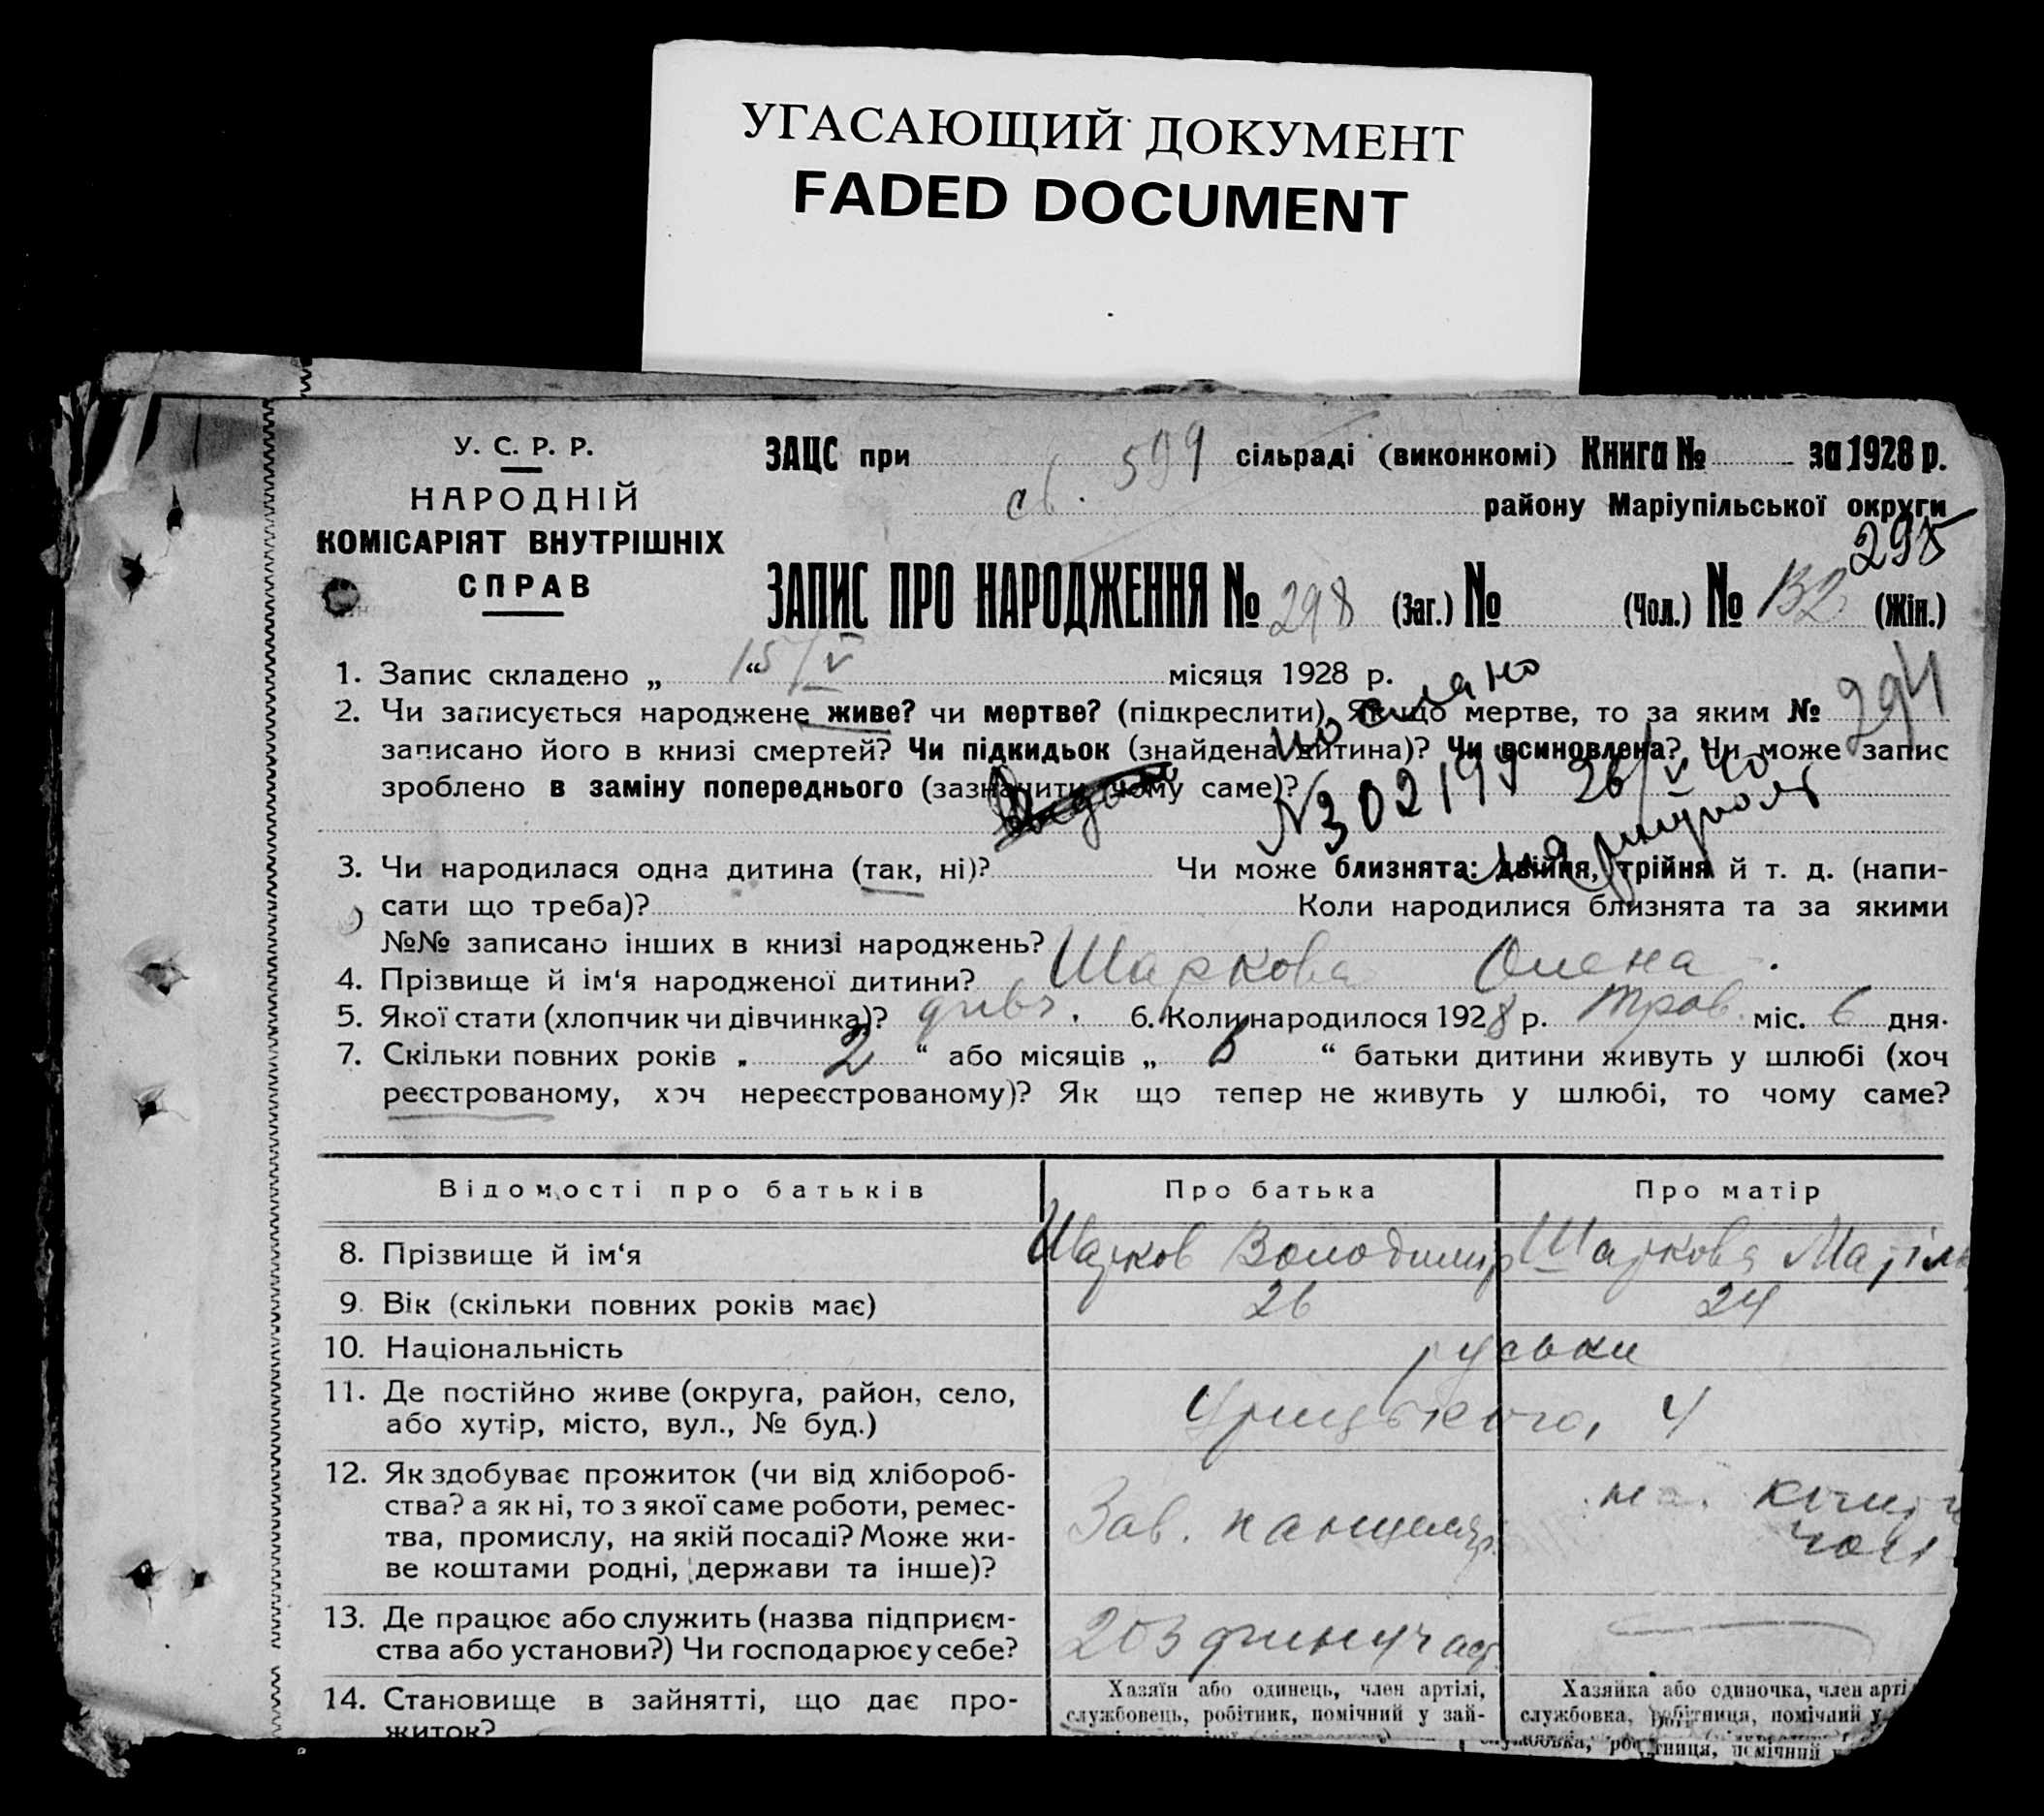 УГАСАЮЩИЙ ДОКУМЕНТ
FADED DOCUMENT
У. С. Р. Р.
НАРОДНІЙ
КОМІСАРІЯТ ВНУТРІШНІХ
СПРАВ
ЗАЦС при 599 сільраді (виконкомі) Книга № за 1928 р.
св. району Маріупільської округи
295
ЗАПИС ПРО НАРОДЖЕННЯ № 298 (Заг.) № (Чол.) № 132 (Жін.)
1. Запис складено „ 15/V “ місяця 1928 р.
2. Чи записується народжене живе? чи мертве? (підкреслити). Як що мертве, то за яким № 294
записано його в книзі смертей? Чи підкидьок (знайдена дитина)? Чи всиновлена? Чи може запис
зроблено в заміну попереднього (зазначити чому саме)?
послано
№302199 26/V 40
Мариуполь
3. Чи народилася одна дитина (так, ні)? Чи може близнята: двійня, трійня й т. д. (напи-
сати що треба)? Коли народилися близнята та за якими
№№ записано інших в книзі народжень?
4. Прізвище й ім‘я народженої дитини? Шаркова Олена
5. Якої стати (хлопчик чи дівчинка)? дивч. 6. Коли народилося 1928 р. трав. міс. 6 дня.
7. Скільки повних років „ 2 “ або місяців „ 6 “ батьки дитини живуть у шлюбі (хоч
реєстрованому, хоч нереєстрованому)? Як що тепер не живуть у шлюбі, то чому саме?
Відомості про батьків Про батька Про матір
8. Прізвище й ім‘я Шарков Володимир Шаркова
9. Вік (скільки повних років має) 26 24
10. Національність руськи
11. Де постійно живе (округа, район, село, Урицького, 4
або хутір, місто, вул., № буд.)
12. Як здобуває прожиток (чи від хлібороб-
ства? а як ні, то з якої саме роботи, ремес-
тва, промислу, на якій посаді? Може жи- Зав. канцеляр.
ве коштами родні, держави та інше)?
13. Де працює або служить (назва підприєм-
ства або установи?) Чи господарює у себе?
14. Становище в зайнятті, що дає про-
житок?
Хазяїн або одинець, член артілі,
службовець, робітник, помічний у зай-
Хазяйка або одиночка, член арті
службовка, робітниця, помічний у
робітниця, помічний